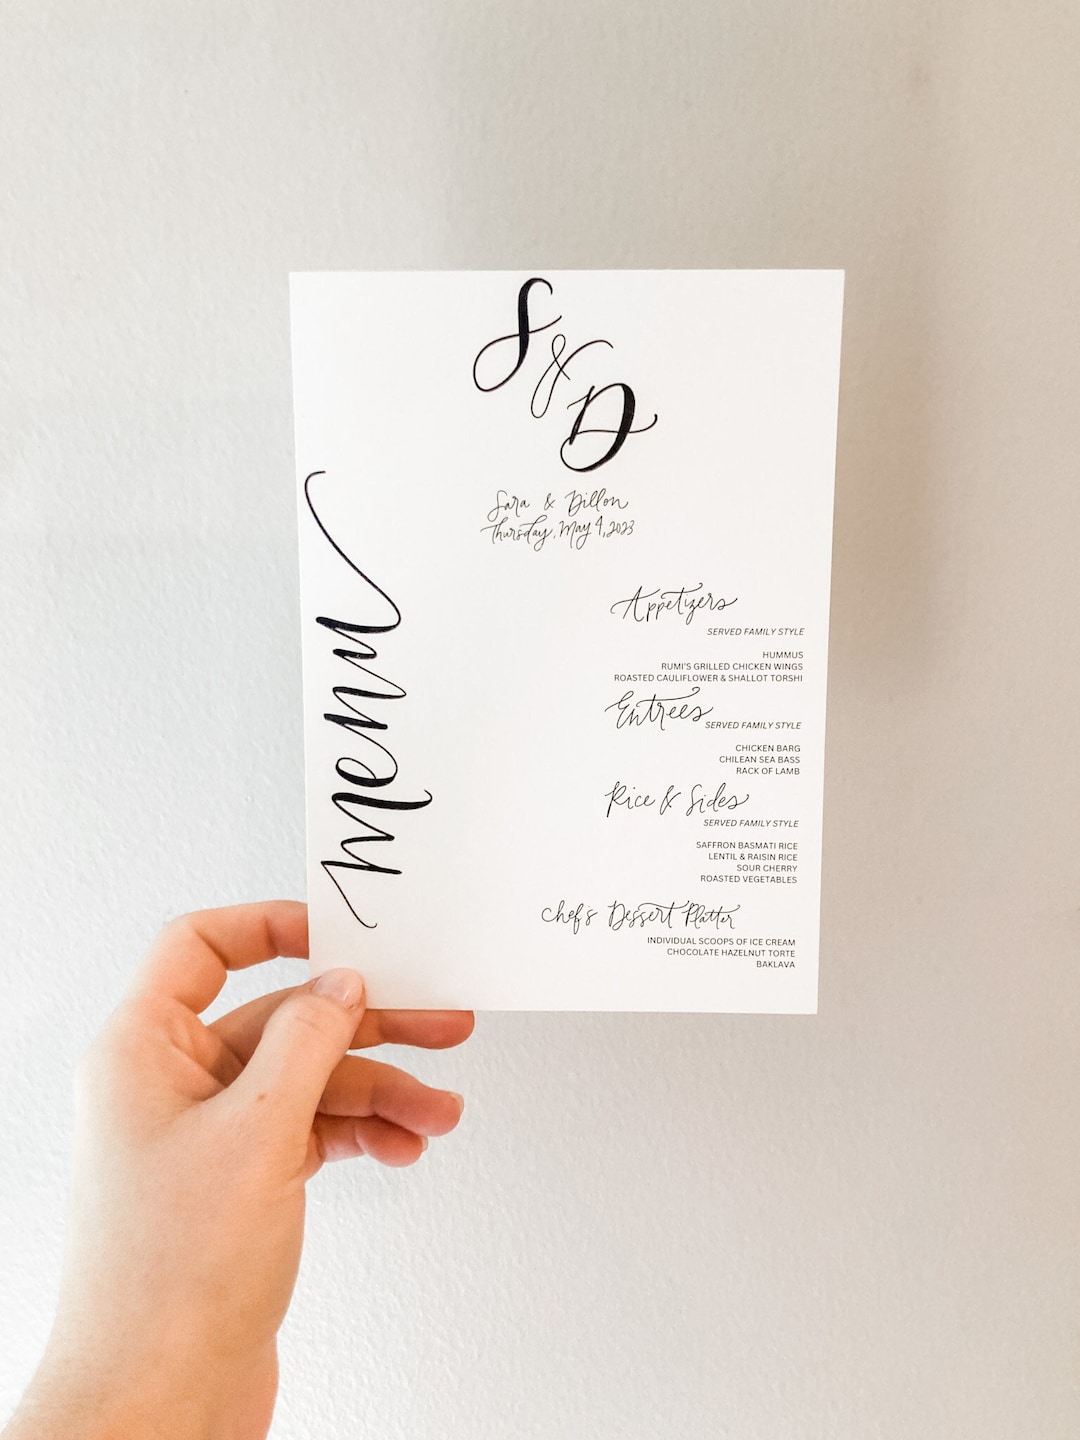 S & D
Sara & Dillon
Thursday, May 4, 2023
menu
Appetizers
SERVED FAMILY STYLE
HUMMUS
RUMI'S GRILLED CHICKEN WINGS
ROASTED CAULIFLOWER & SHALLOT TORSHI
Entrees
SERVED FAMILY STYLE
CHICKEN BARG
CHILEAN SEA BASS
RACK OF LAMB
Rice & Sides
SERVED FAMILY STYLE
SAFFRON BASMATI RICE
LENTIL & RAISIN RICE
SOUR CHERRY
ROASTED VEGETABLES
Chef's Dessert Platter
INDIVIDUAL SCOOPS OF ICE CREAM
CHOCOLATE HAZELNUT TORTE
BAKLAVA